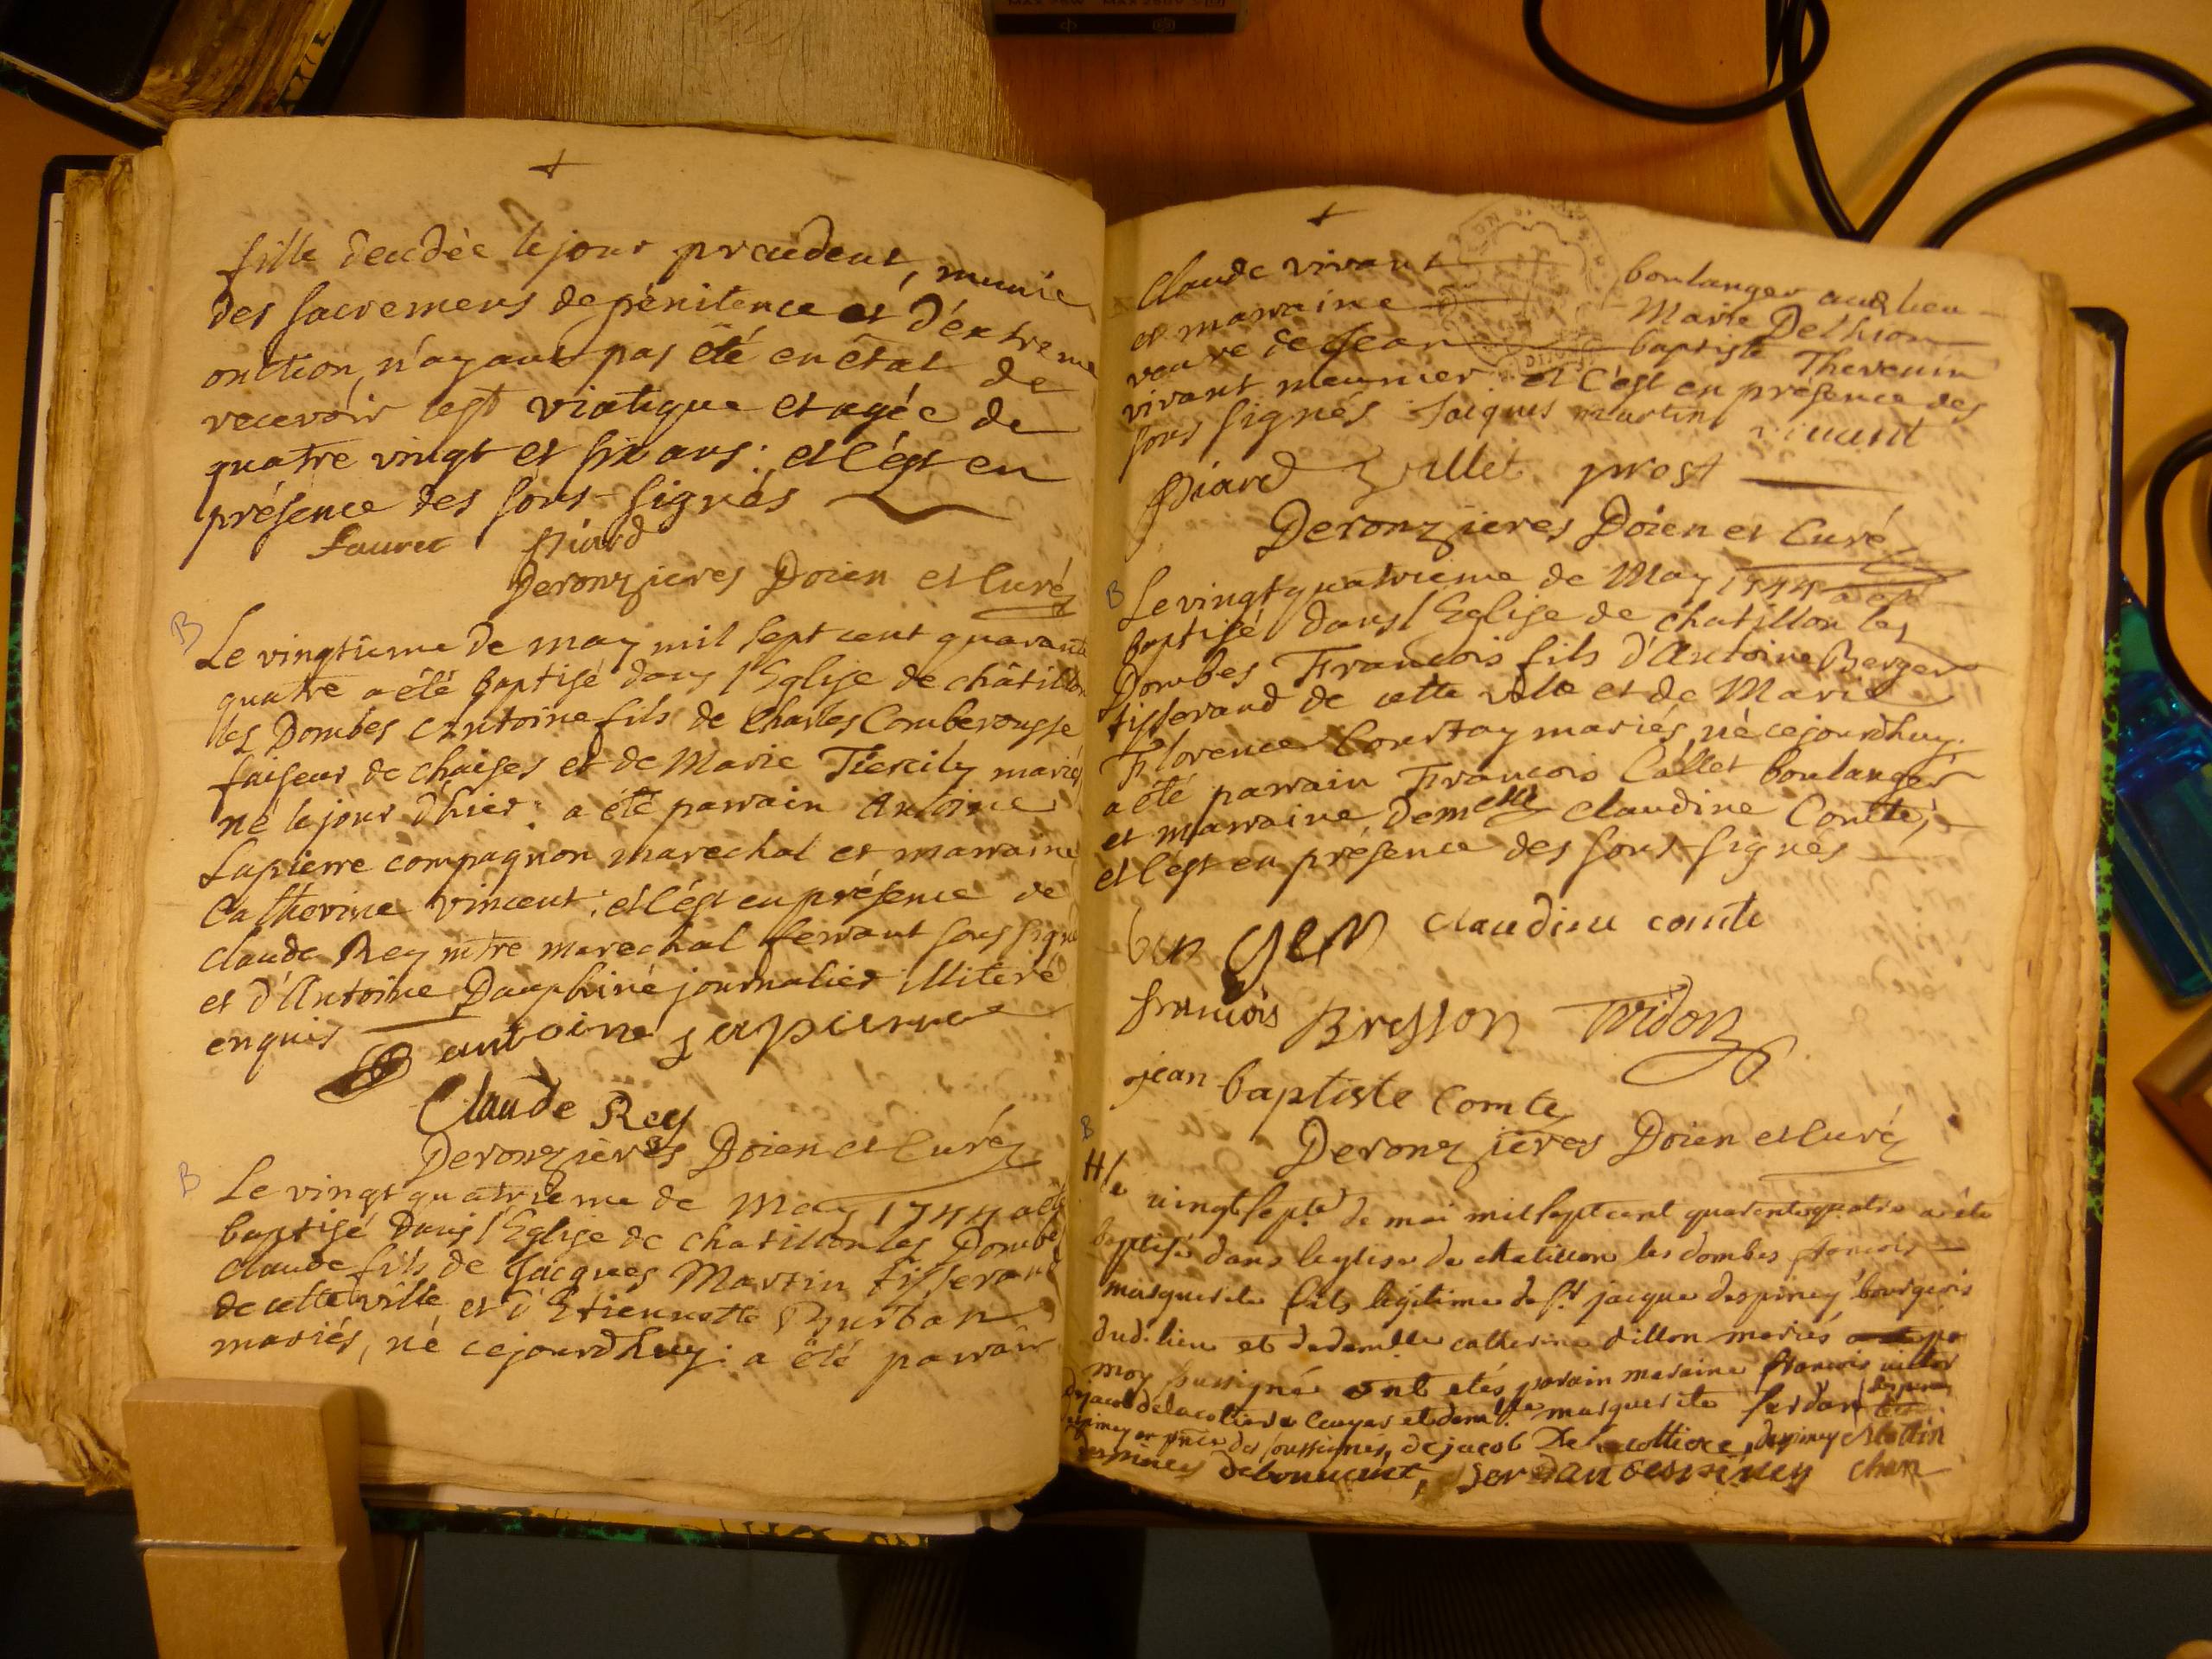 fille decédée le jour précédent, munie
des sacremens de pénitence et d'extreme
onction, n'ayant pas été en état de
recevoir le st viatique et agée de
quatre vingt et six ans : et c'est en
présence des sous-signés
Lauret Piard
Deronzieres Doien et Curé
B
Le vingtieme de may mil sept cent quarante
quatre a été baptisé dans l'Eglise de châtillon
les Dombes Antoine fils de Charles Comberousse
faiseur de chaises et de Marie Tiercily mariés
né le jour d'hier : a été parrain Antoine
Lapierre compagnon marechal et marraine
Catherine vincent ; et c'est en présence de
claude Rey mtre marechal ferrant sous signé
et d'Antoine Dauphiné journalier illiteré
enquis
antoine lapierre
Claude Rey
Deronzieres Doien et Curé
B
Le vingt quatrieme de May 1744 a été
baptisé dans l'Eglise de chatillon les Dombes
claude fils de Jacques Martin tisserand
de cette ville et d'Etiennette Burban
mariés, né cejourdhuy : a été parrain
Claude vivant boulanger aud lieu
et marraine Marie Delhion
veuve de Jean baptiste Thevenin
vivant meunier : et c'est en présence des
sous signés Jacques martin vivant
Piard Jullet prost
Deronzieres Doien et Curé
B
Le vingt quatrieme de May 1744 a été
baptisé dans l'Eglise de chatillon les
Dombes Francois fils d'Antoine Berger
tisserand de cette ville et de Marie
Florence Courtay mariés, né cejourdhuy.
a été parrain Francois Callet boulanger
et marraine Demelle Claudine Comte,
et c'est en présence des sous-signés
ber ger Claudine comte
francois Bresson Tridon
jean baptiste Comte
Deronzieres Doien et Curé
B
H le vingt sept de mai mil sept cent quarente quatre a été
baptisé dans leglise de chatillon les dombes francois
marguerite fils legitime de sr jacque despiney bourgeois
dud. lieu et de demlle catherine dillon mariés
moy soussigné ont etés parain maraine francois victor
dejacob delacotiere ecuyer et demlle marguerite ferdan
despiney en pnce des soussignés, dejacob De lacottiere, despiney
despiney debonnenet, chan